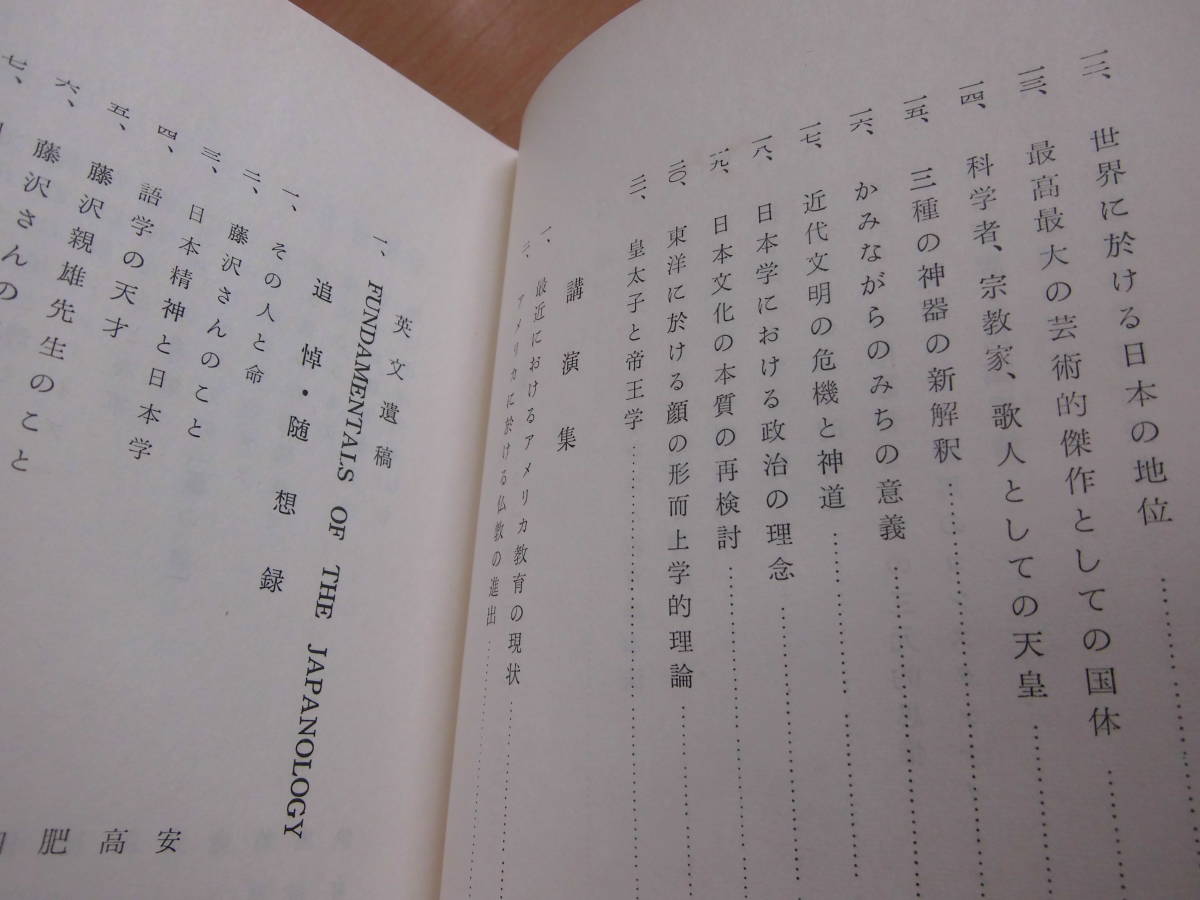 一二、世界に於ける日本の地位
一三、最高最大の芸術的傑作としての国体
一四、科学者、宗教家、歌人としての天皇
一五、三種の神器の新解釈
一六、かみながらのみちの意義
一七、近代文明の危機と神道
一八、日本学における政治の理念
一九、日本文化の本質の再検討
二〇、東洋に於ける顔の形而上学的理論
二一、皇太子と帝王学
講演集
一、最近におけるアメリカ教育の現状
二、アメリカに於ける仏教の進出
英文遺稿
一、FUNDAMENTALS OF THE JAPANOLOGY
追悼・随想録
一、その人と命
二、藤沢さんのこと
三、日本精神と日本学
四、語学の天才
五、藤沢親雄先生のこと
六、藤沢さんの
七、
安高肥